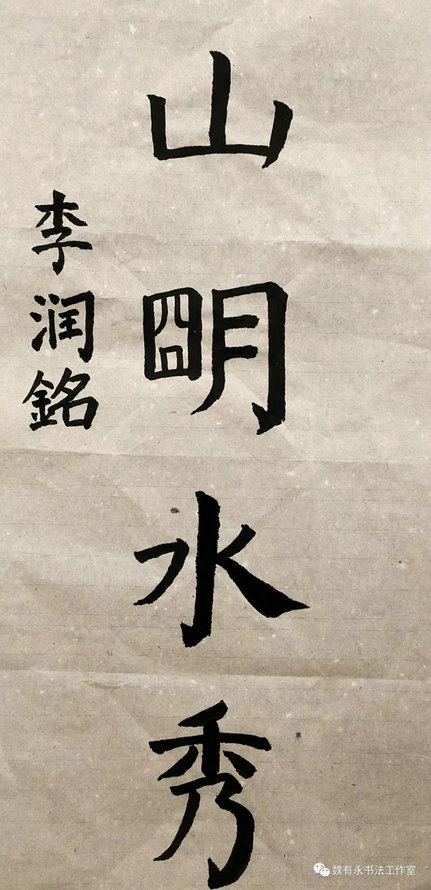 山朙水秀
李润銘
魏有永书法工作室